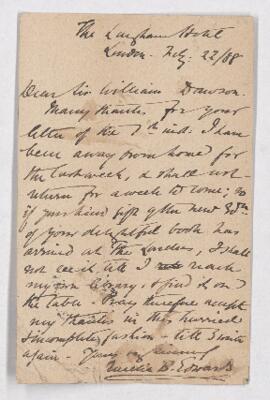 The Langham Hotel
London. Feby: 22/88
Dear Sir William Dawson.
Many thanks for your
letter of the 7th inst: I have
been away from home for
the last week, & shall not
return for a week to come; so
if your kind gift of the new Edtn.
of your delightful book has
arrived at The Larches, I shall
not see it till I reach
my own library, & find it on
the table. Pray therefore accept
my thanks in this hurried
& incomplete fashion - till I write
again - Yours
Amelia B. Edwards